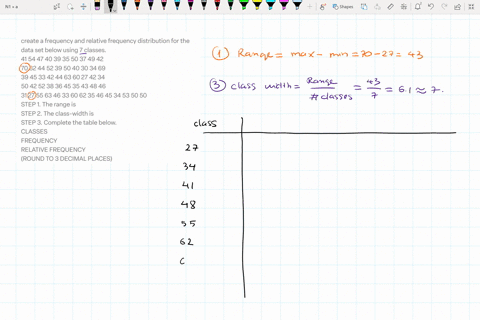 N1
create a frequency and relative frequency distribution for the
data set below using 7 classes.
41 54 47 40 39 35 50 37 49 42
70 32 44 52 39 50 40 30 34 69
39 45 33 42 44 63 60 27 42 34
50 42 52 38 36 45 35 43 48 46
31 27 55 63 46 33 60 62 35 46 45 34 53 50 50
STEP 1. The range is
STEP 2. The class-width is
STEP 3. Complete the table below.
CLASSES
FREQUENCY
RELATIVE FREQUENCY
(ROUND TO 3 DECIMAL PLACES)
(1) Range = max - min = 70 - 27 = 43
(3) class width = Range / # classes = 43 / 7 = 6.1 ≈ 7.
class
27
34
41
48
55
62
Shapes